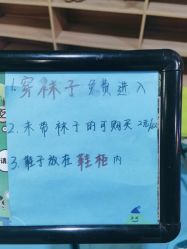 1. 穿袜子免费进入
2. 未带袜子的可购买 2元/双
3. 鞋子放在鞋柜内
请